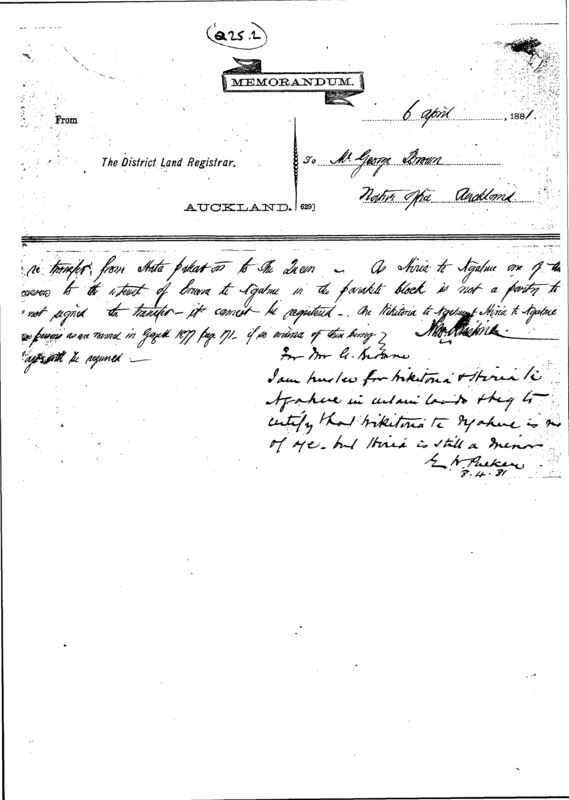 Q25.2
MEMORANDUM.
6 April, 1881.
From
The District Land Registrar,
To Mr George Brown
Native Office Auckland
AUCKLAND. 629]
re transfer from to The Queen - As Hiria te Ngahue one of the
to the interest of te Ngahue in the block is not a party to
not signed the transfer - it cannot be registered - Are Wikitoria te Ngahue & Hiria te Ngahue
as named in Gazette 1877 page 171 - if so evidence of their being
age will be required -
For Mr G. Browne
I am trustee for Wikitoria & Hiria te
Ngahue in certain lands & beg to
certify that Wikitoria te Ngahue is now
of age - but Hiria is still a minor
8.4.81